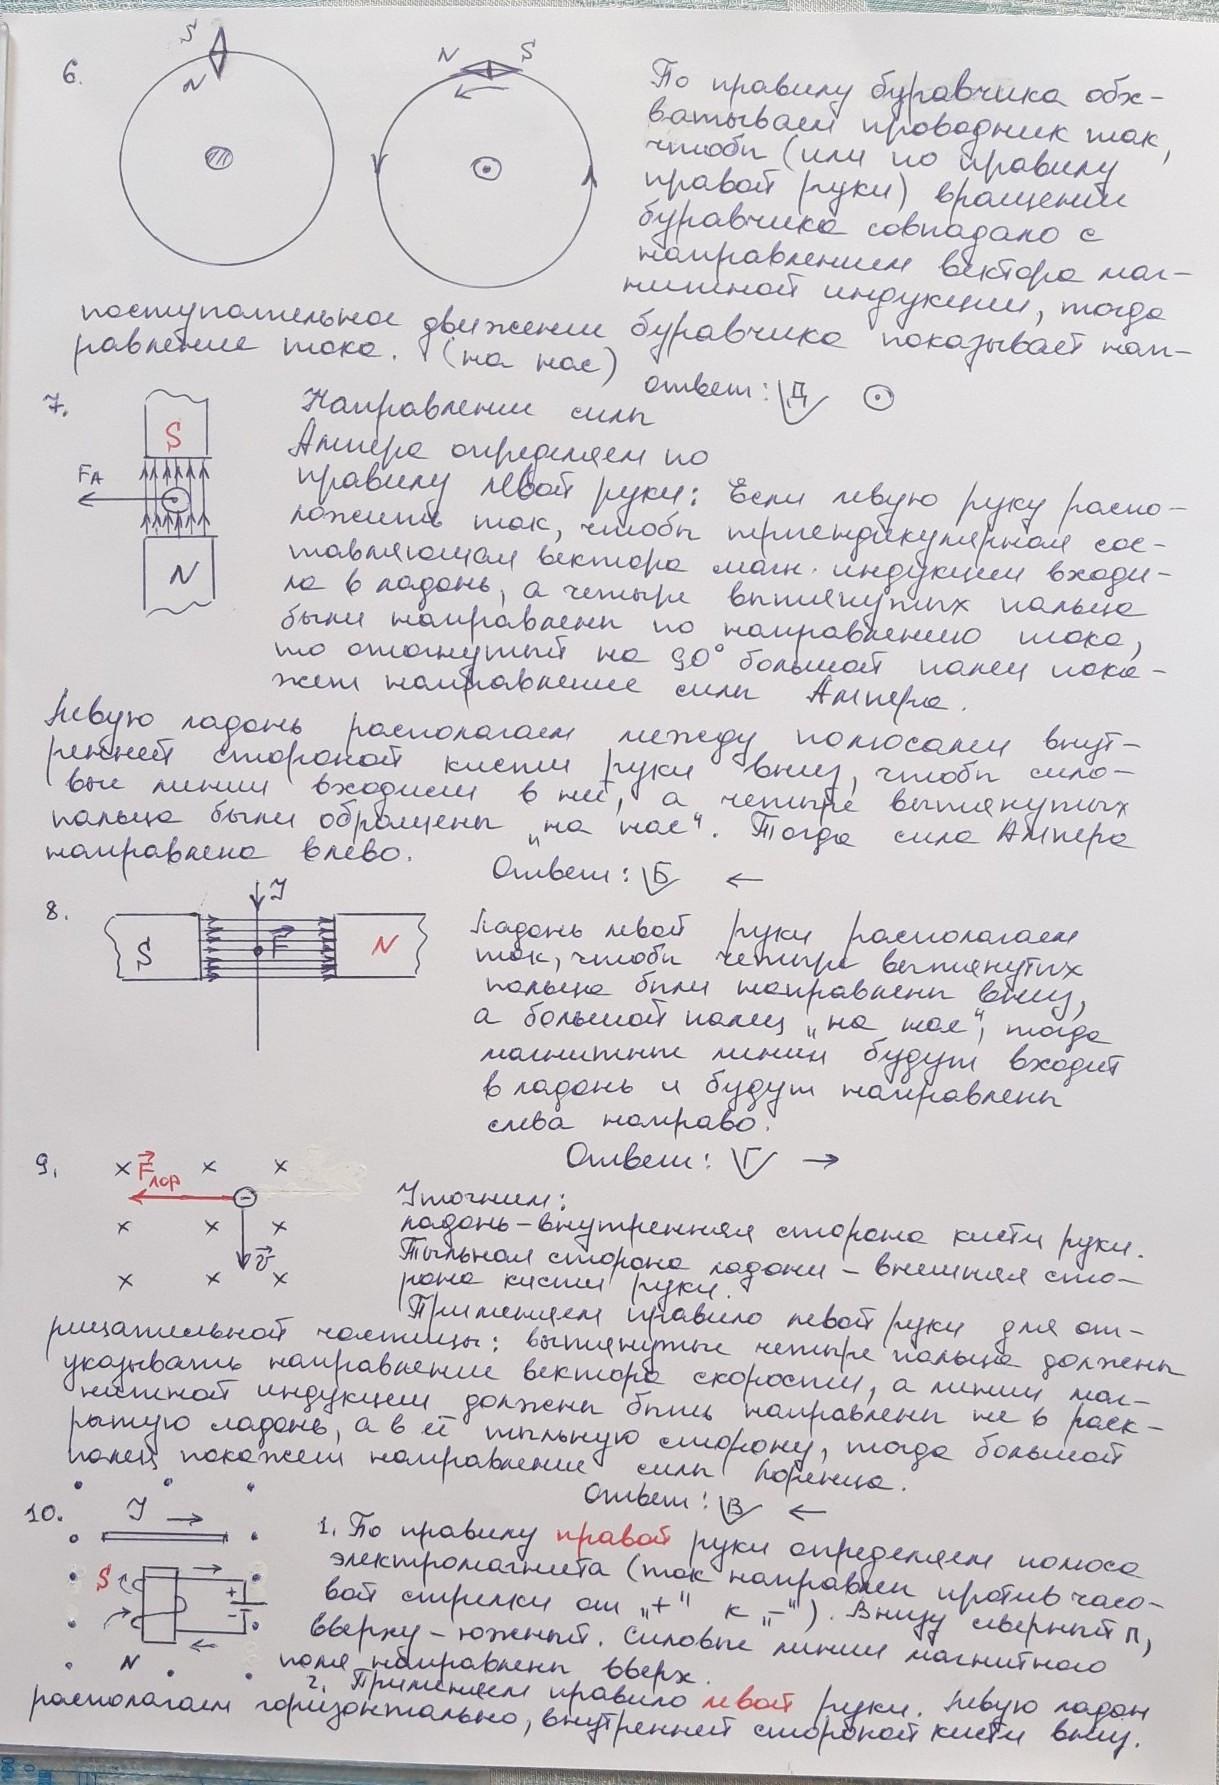 6.
S
N
N S
По правилу буравчика обх-
ватываем проводник так,
чтобы (или по правилу
правой руки) вращение
буравчика совпадало с
направлением вектора маг-
нитной индукции, тогда
поступательное движение буравчика показывает нап-
равление тока. (на нас)
Ответ: Д
7.
S
FA
N
Направление силы
Ампера определяем по
правилу левой руки: Если левую руку распо-
ложить так, чтобы перпендикулярная сос-
тавляющая вектора магн. индукции входи-
ла в ладонь, а четыре вытянутых пальца
были направлены по направлению тока,
то отогнутый на 90° большой палец пока-
жет направление силы Ампера.
Левую ладонь располагаем между полюсами внут-
ренней стороной кисти руки вниз, чтобы сило-
вые линии входили в неё, а четыре вытянутых
пальца были обращены „на нас“. Тогда сила Ампера
направлена влево.
Ответ: Б ←
8.
I
S F N
Ладонь левой руки располагаем
так, чтобы четыре вытянутых
пальца были направлены вниз,
а большой палец „на нас“, тогда
магнитные линии будут входит
в ладонь и будут направлены
слева направо.
Ответ: Г →
9.
Fлор
−
v
Уточним:
ладонь – внутренняя сторона кисти руки.
Тыльная сторона ладони – внешняя сто-
рона кисти руки.
Применяем правило левой руки для от-
рицательной частицы: вытянутые четыре пальца должны
указывать направление вектора скорости, а линии маг-
нитной индукции должны быть направлены не в раск-
рытую ладонь, а в её тыльную сторону, тогда большой
палец покажет направление силы Лоренца.
Ответ: В ←
10.
I →
S
+
−
N
1. По правилу правой руки определяем полюса
электромагнита (ток направлен против часо-
вой стрелки от „+“ к „–“). Внизу северный п,
вверху – южный. Силовые линии магнитного
поля направлены вверх.
2. Применяем правило левой руки. Левую ладон
располагаем горизонтально, внутренней стороной кисти вниз.